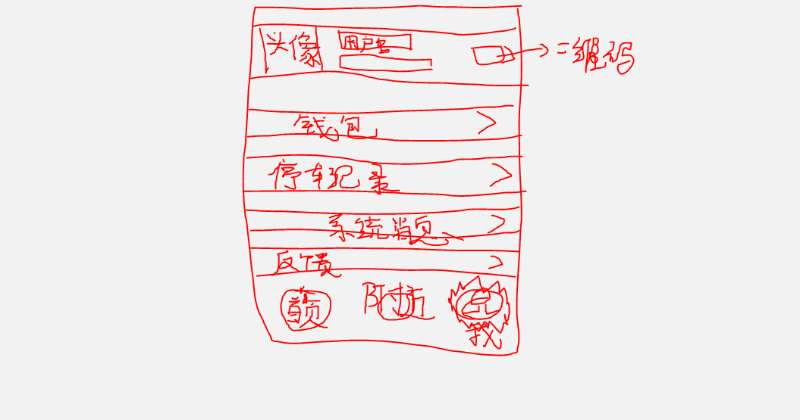 头像 用户名 二维码
钱包
停车记录
系统消息
反馈
首页 附近
我